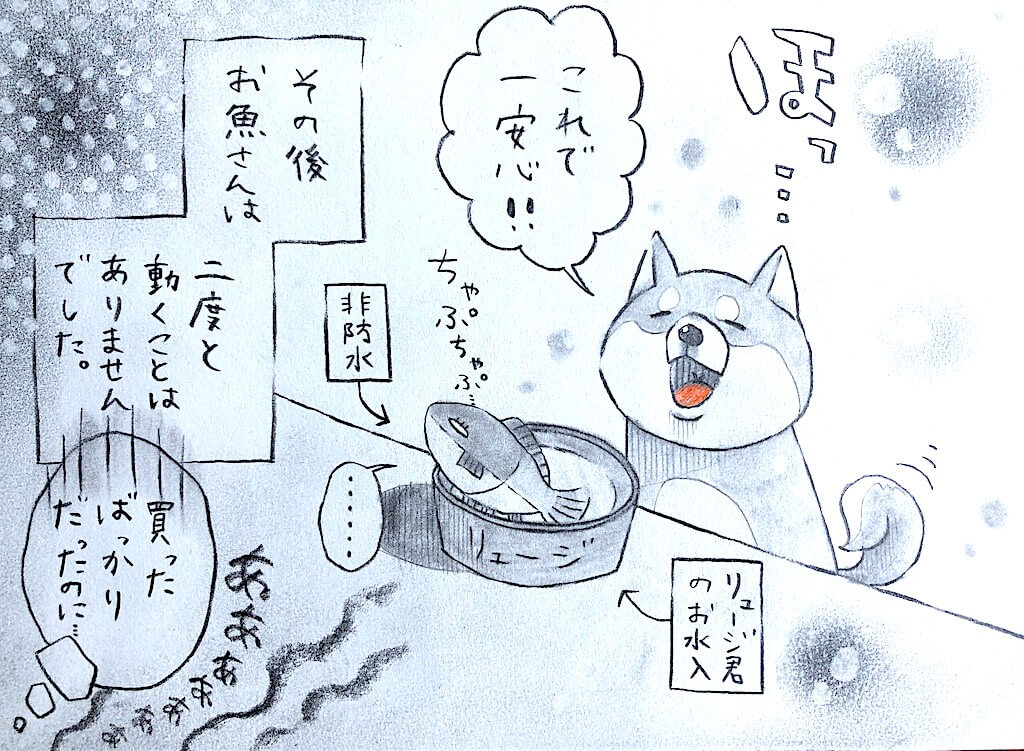 ほっ…
これで
一安心!!
ちゃぷちゃぷ…
非防水
リュージ
リュージ君
のお水入
……
その後
お魚さんは
二度と
動くことは
ありません
でした。
買った
ばっかり
だったのに…
あぁあぁああああぁ